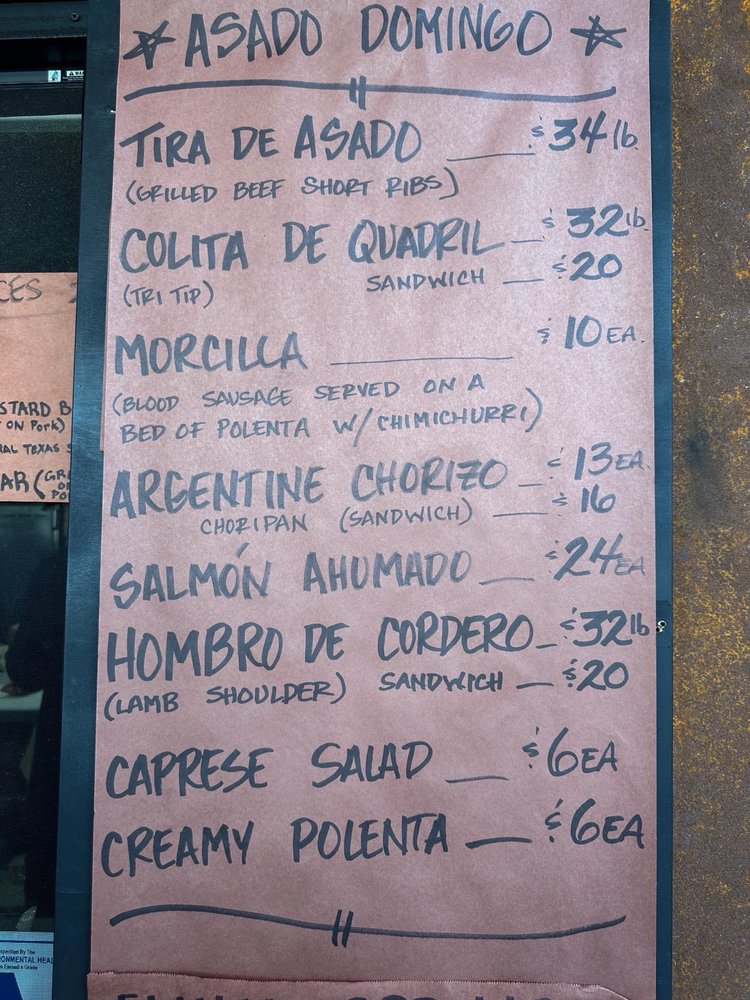 ASADO DOMINGO
TIRA DE ASADO $34 lb.
(GRILLED BEEF SHORT RIBS)
COLITA DE QUADRIL $32 lb.
(TRI TIP) SANDWICH $20
MORCILLA $10 EA.
(BLOOD SAUSAGE SERVED ON A
BED OF POLENTA W/ CHIMICHURRI)
ARGENTINE CHORIZO $13 EA.
CHORIPAN (SANDWICH) $16
SALMÓN AHUMADO $24 EA
HOMBRO DE CORDERO $32 lb
(LAMB SHOULDER) SANDWICH $20
CAPRESE SALAD $6 EA
CREAMY POLENTA $6 EA
CES
STARD B
ON PORK)
AL TEXAS
AR (GR